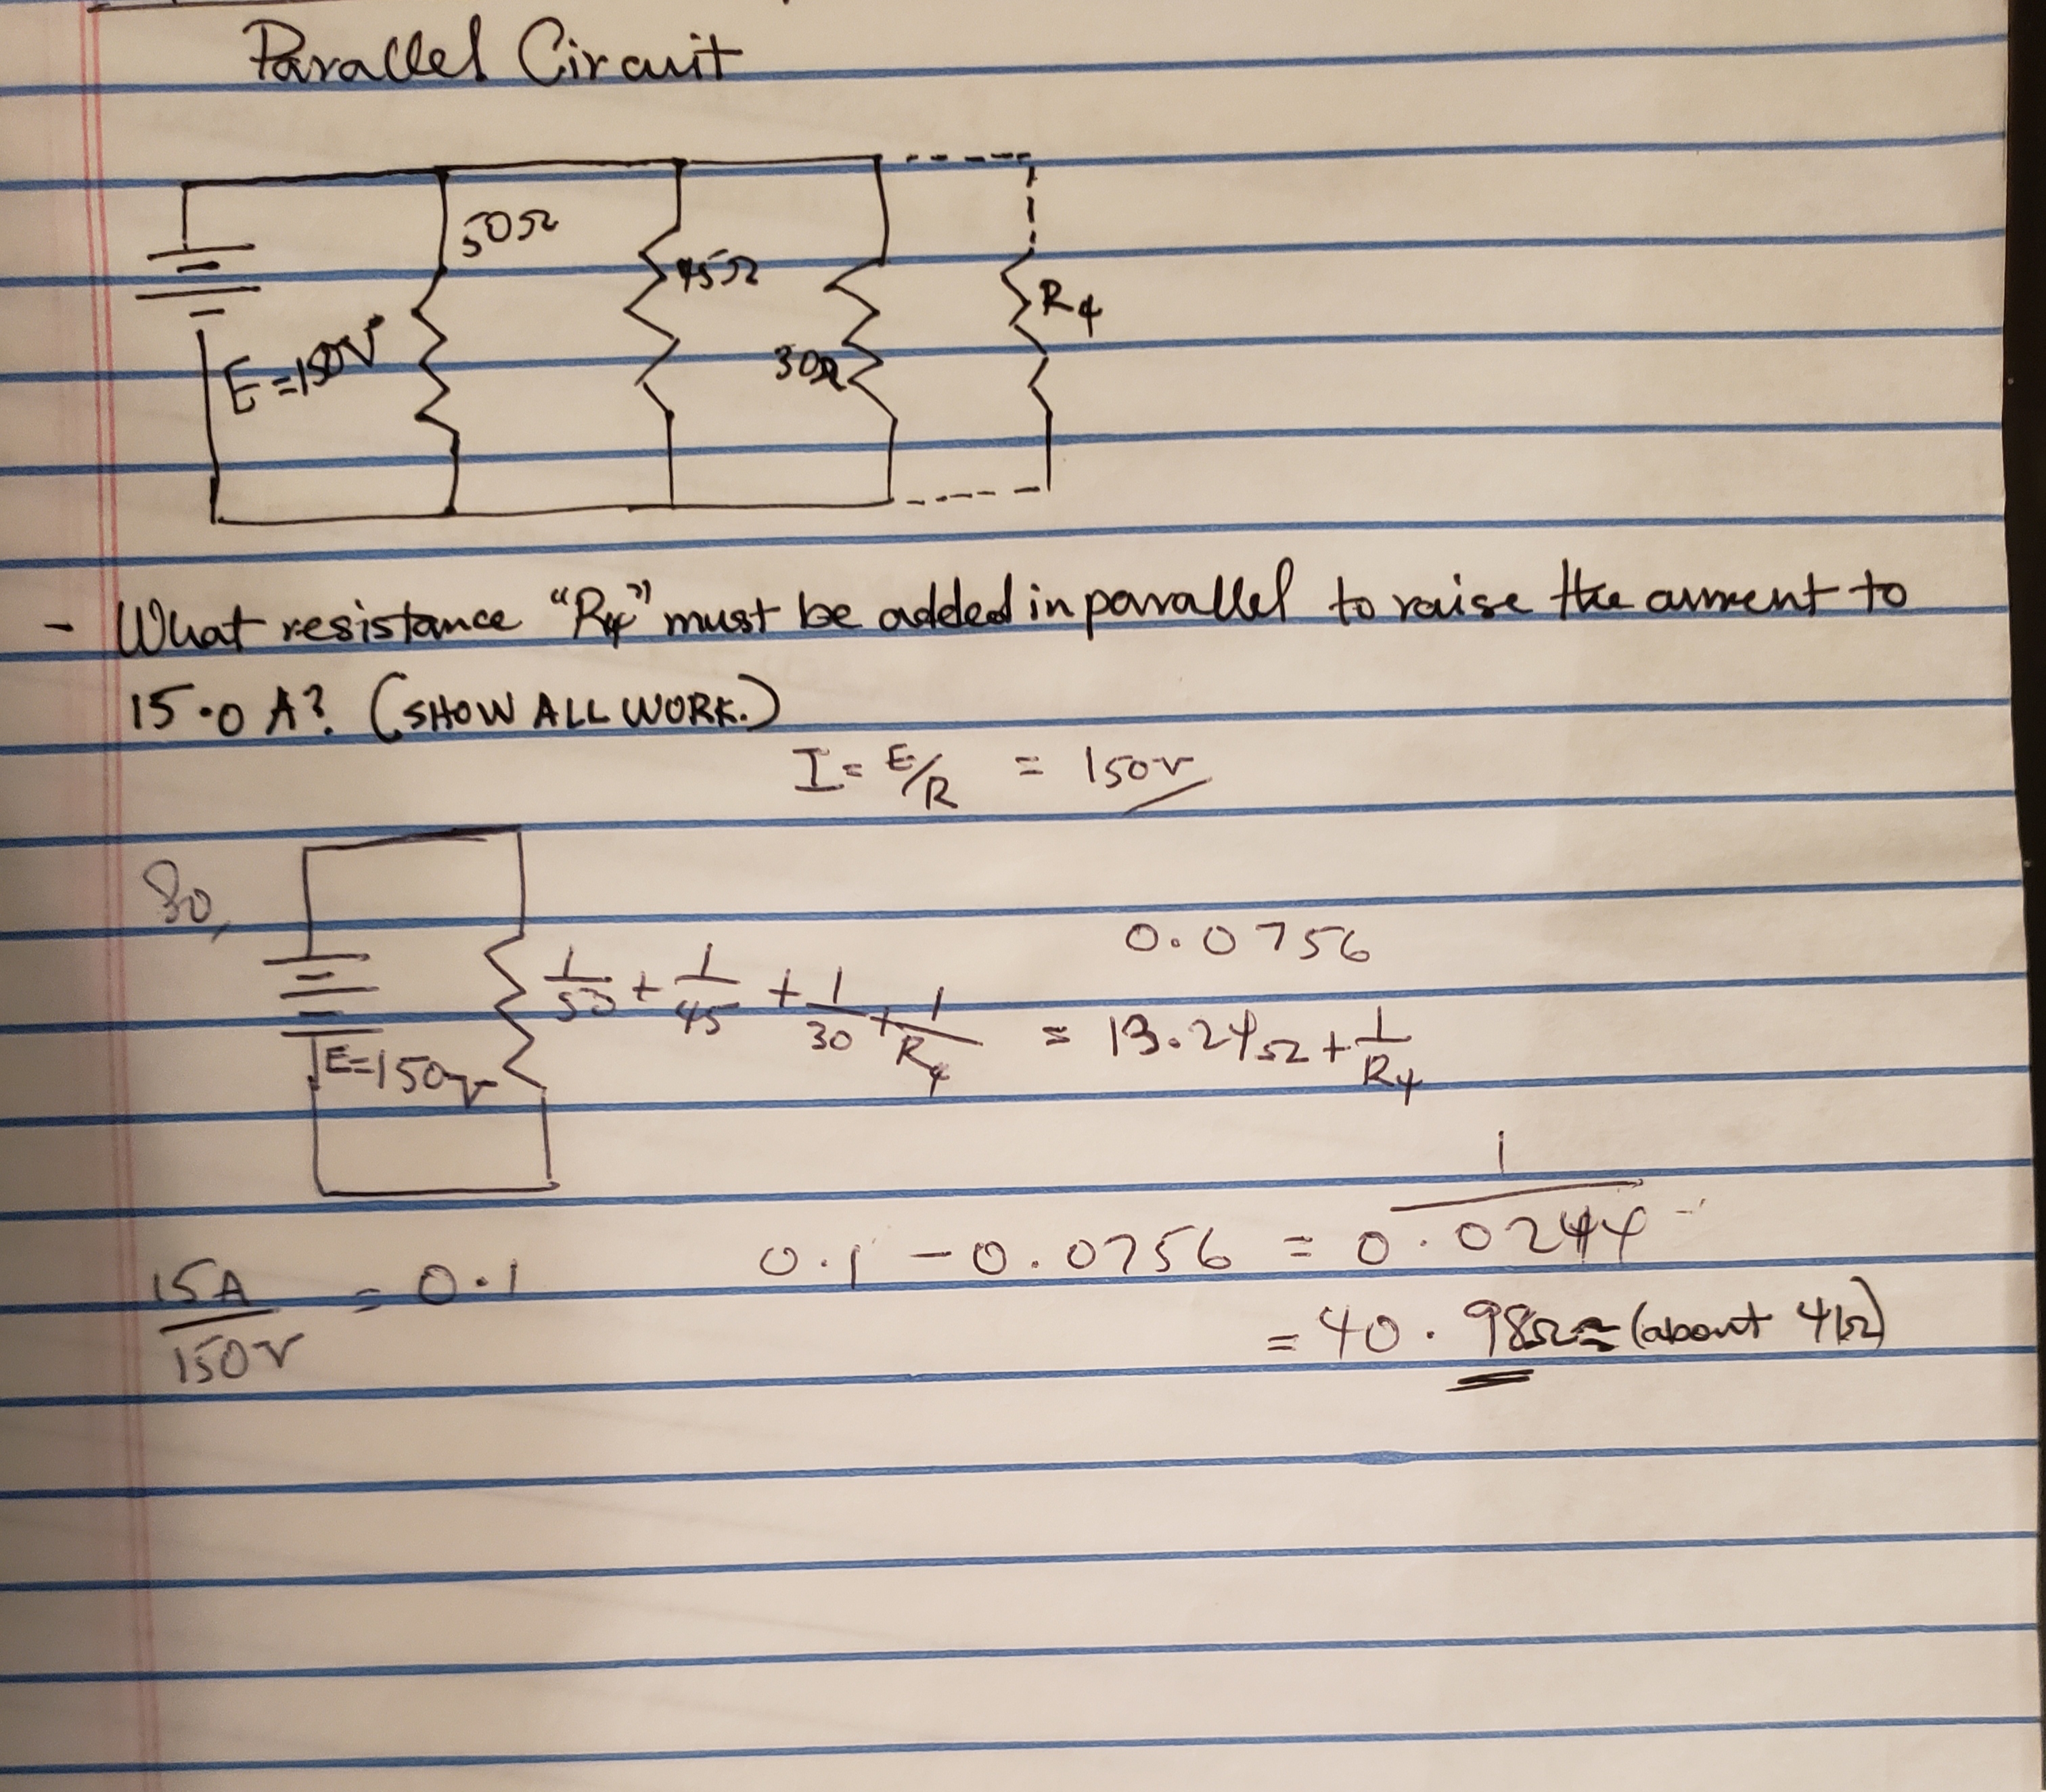 Parallel Circuit
50Ω
45Ω
R4
E=150V
30Ω
- What resistance "R4" must be added in parallel to raise the current to
15.0 A? (SHOW ALL WORK.)
I = E/R = 150V
So,
0.0756
1/50 + 1/45 + 1/30 + 1/R4 = 13.24Ω + 1/R4
E=150V
1
0.1 - 0.0756 = 0.0244 =
15A/150V = 0.1
= 40.98Ω ≈ (about 41Ω)